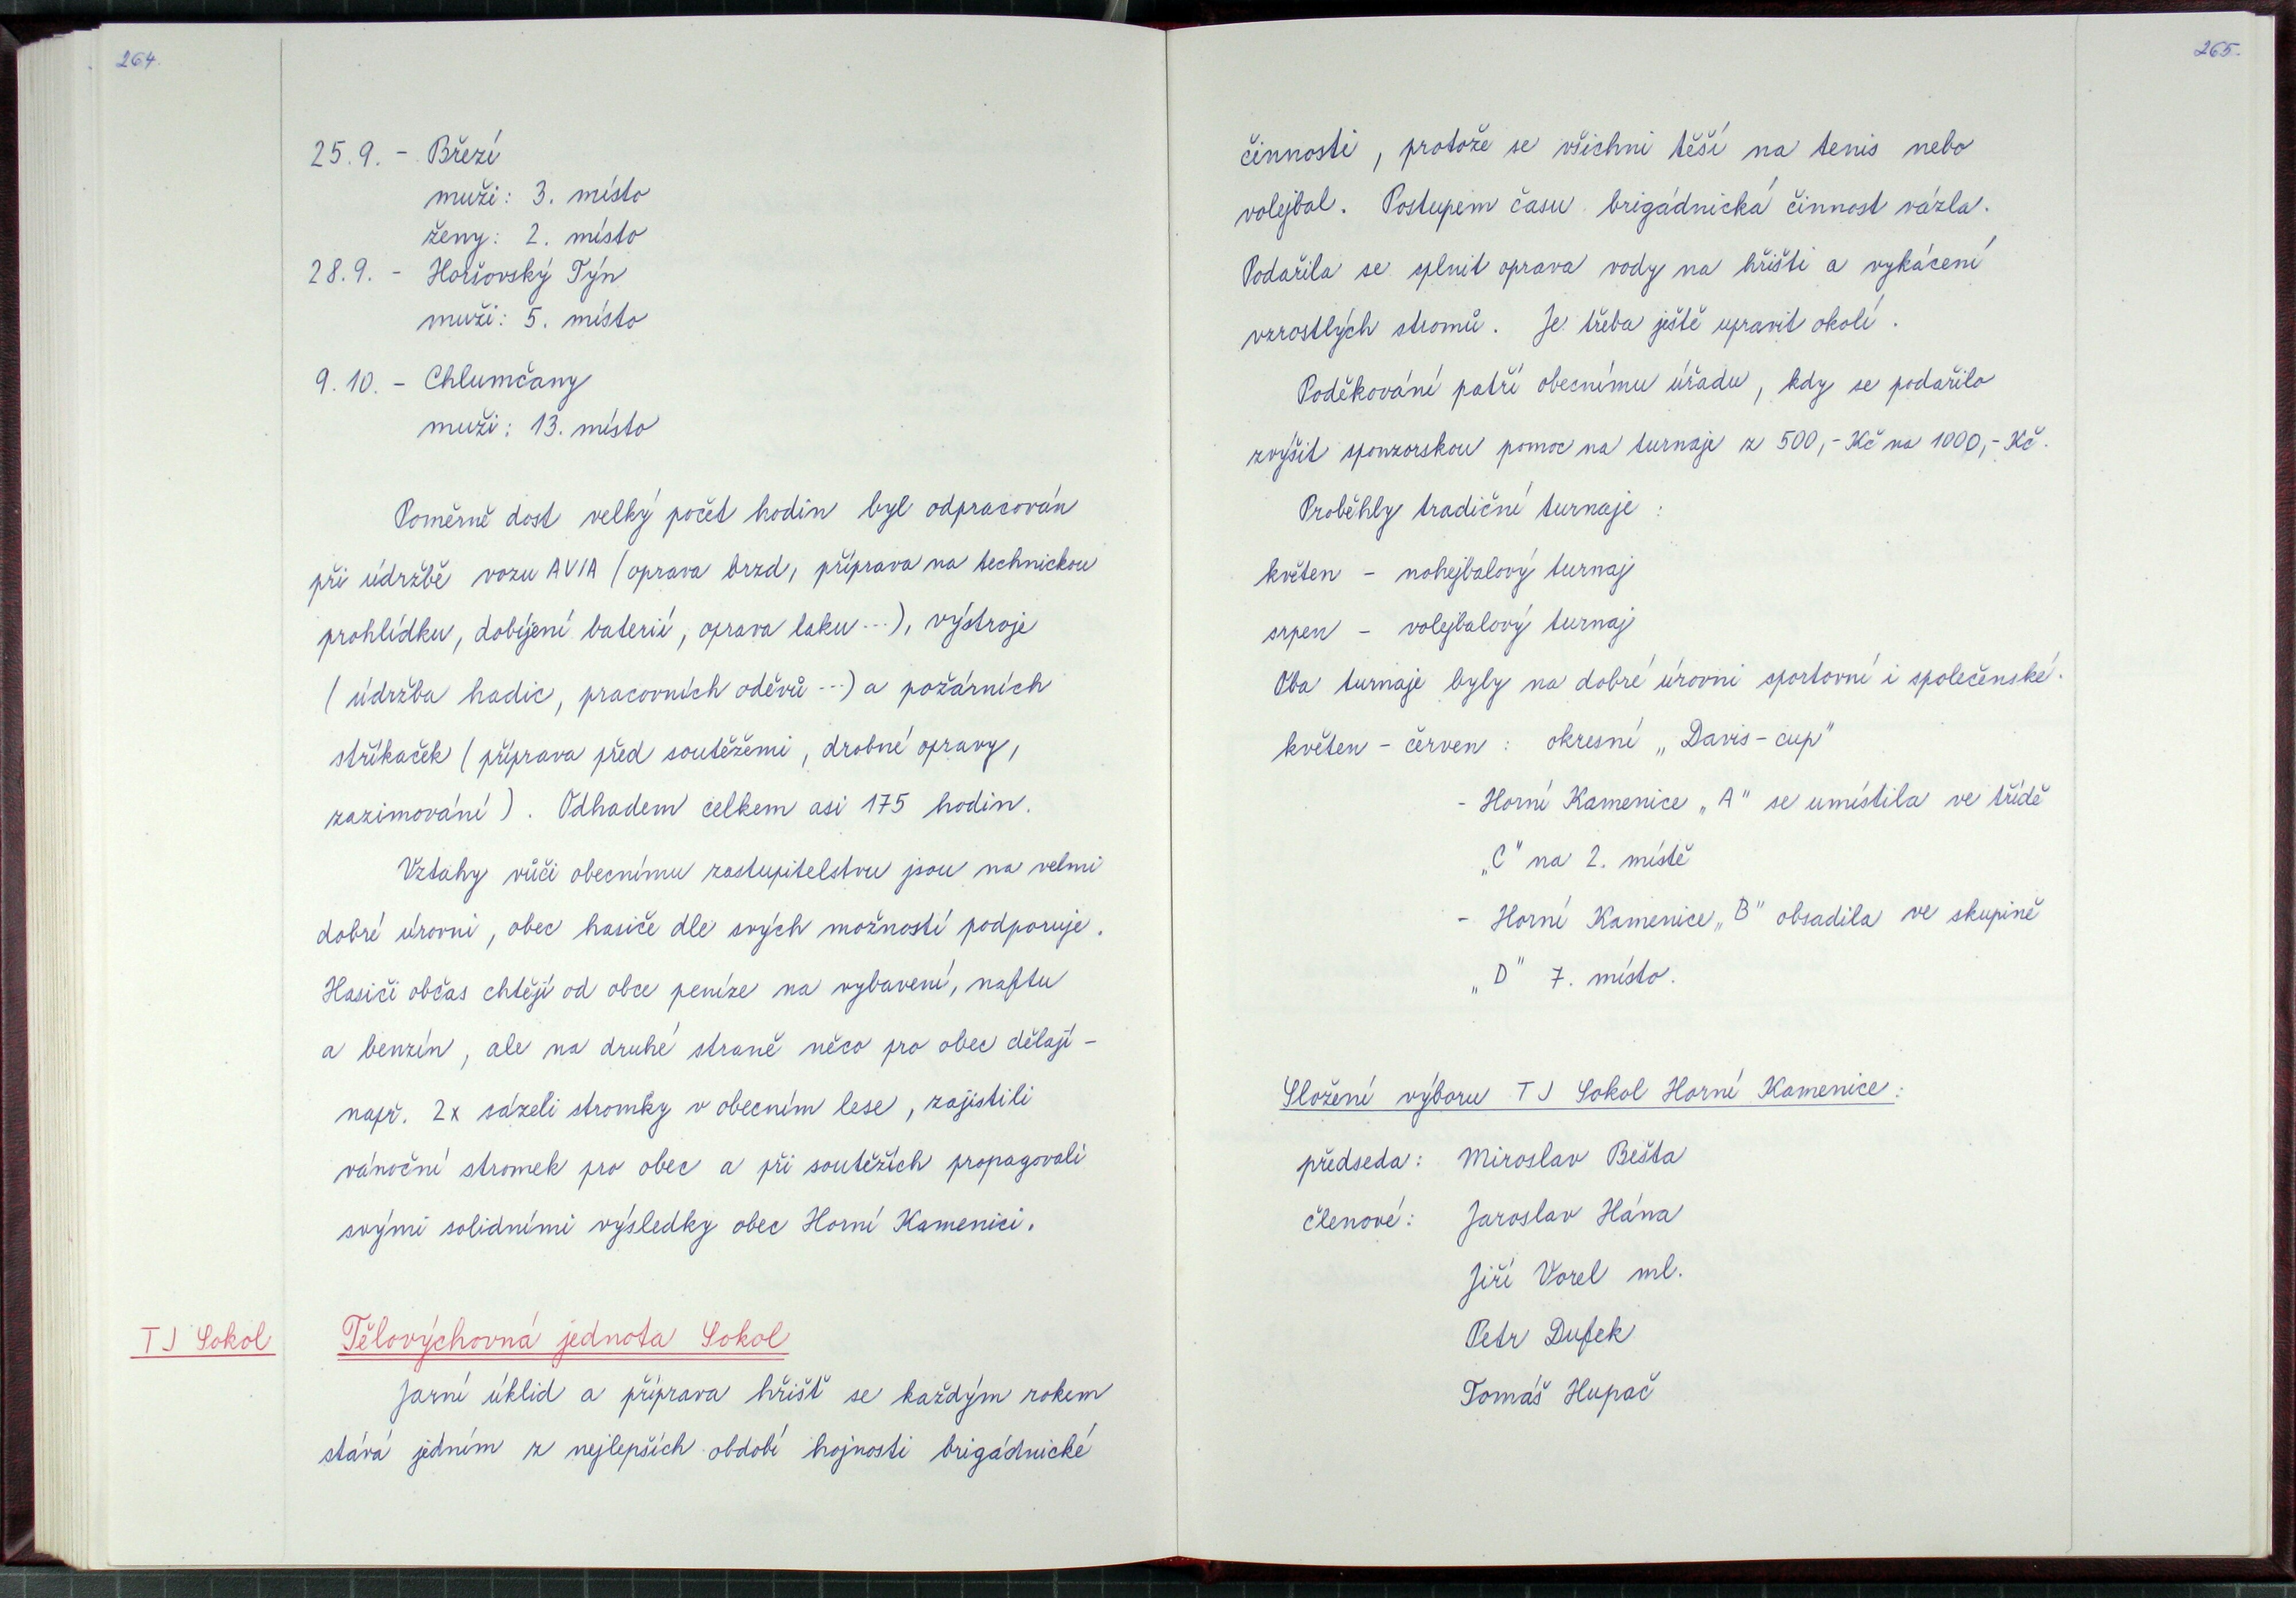 264.
25.9. - Březí
muži: 3. místo
ženy: 2. místo
28.9. - Horšovský Týn
muži: 5. místo
9.10. - Chlumčany
muži: 13. místo
Poměrně dost velký počet hodin byl odpracován
při údržbě vozu AVIA (oprava brzd, příprava na technickou
prohlídku, dobíjení baterií, oprava laku ...), výstroje
(údržba hadic, pracovních oděvů ...) a požárních
stříkaček (příprava před soutěžemi, drobné opravy,
zazimování). Odhadem celkem asi 175 hodin.
Vztahy vůči obecnímu zastupitelstvu jsou na velmi
dobré úrovni, obec hasiče dle svých možností podporuje.
Hasiči občas chtějí od obce peníze na vybavení, naftu
a benzín, ale na druhé straně něco pro obec dělají -
např. 2x sázeli stromky v obecním lese, zajistili
vánoční stromek pro obec a při soutěžích propagovali
svými solidními výsledky obec Horní Kamenici.
TJ Sokol
Tělovýchovná jednota Sokol
Jarní úklid a příprava hřišť se každým rokem
stává jedním z nejlepších období hojnosti brigádnické
265.
činnosti, protože se všichni těší na tenis nebo
volejbal. Postupem času brigádnická činnost vázla.
Podařila se splnit oprava vody na hřišti a vykácení
vzrostlých stromů. Je třeba ještě upravit okolí.
Poděkování patří obecnímu úřadu, kdy se podařilo
zvýšit sponzorskou pomoc na turnaje z 500,- Kč na 1000,- Kč.
Proběhly tradiční turnaje :
květen - nohejbalový turnaj
srpen - volejbalový turnaj
Oba turnaje byly na dobré úrovni sportovní i společenské.
květen - červen : okresní „Davis - cup"
- Horní Kamenice „A" se umístila ve třídě
„C" na 2. místě
- Horní Kamenice „B" obsadila ve skupině
„D" 7. místo.
Složení výboru TJ Sokol Horní Kamenice:
předseda: Miroslav Bešta
členové: Jaroslav Hána
Jiří Vorel ml.
Petr Dufek
Tomáš Hupač